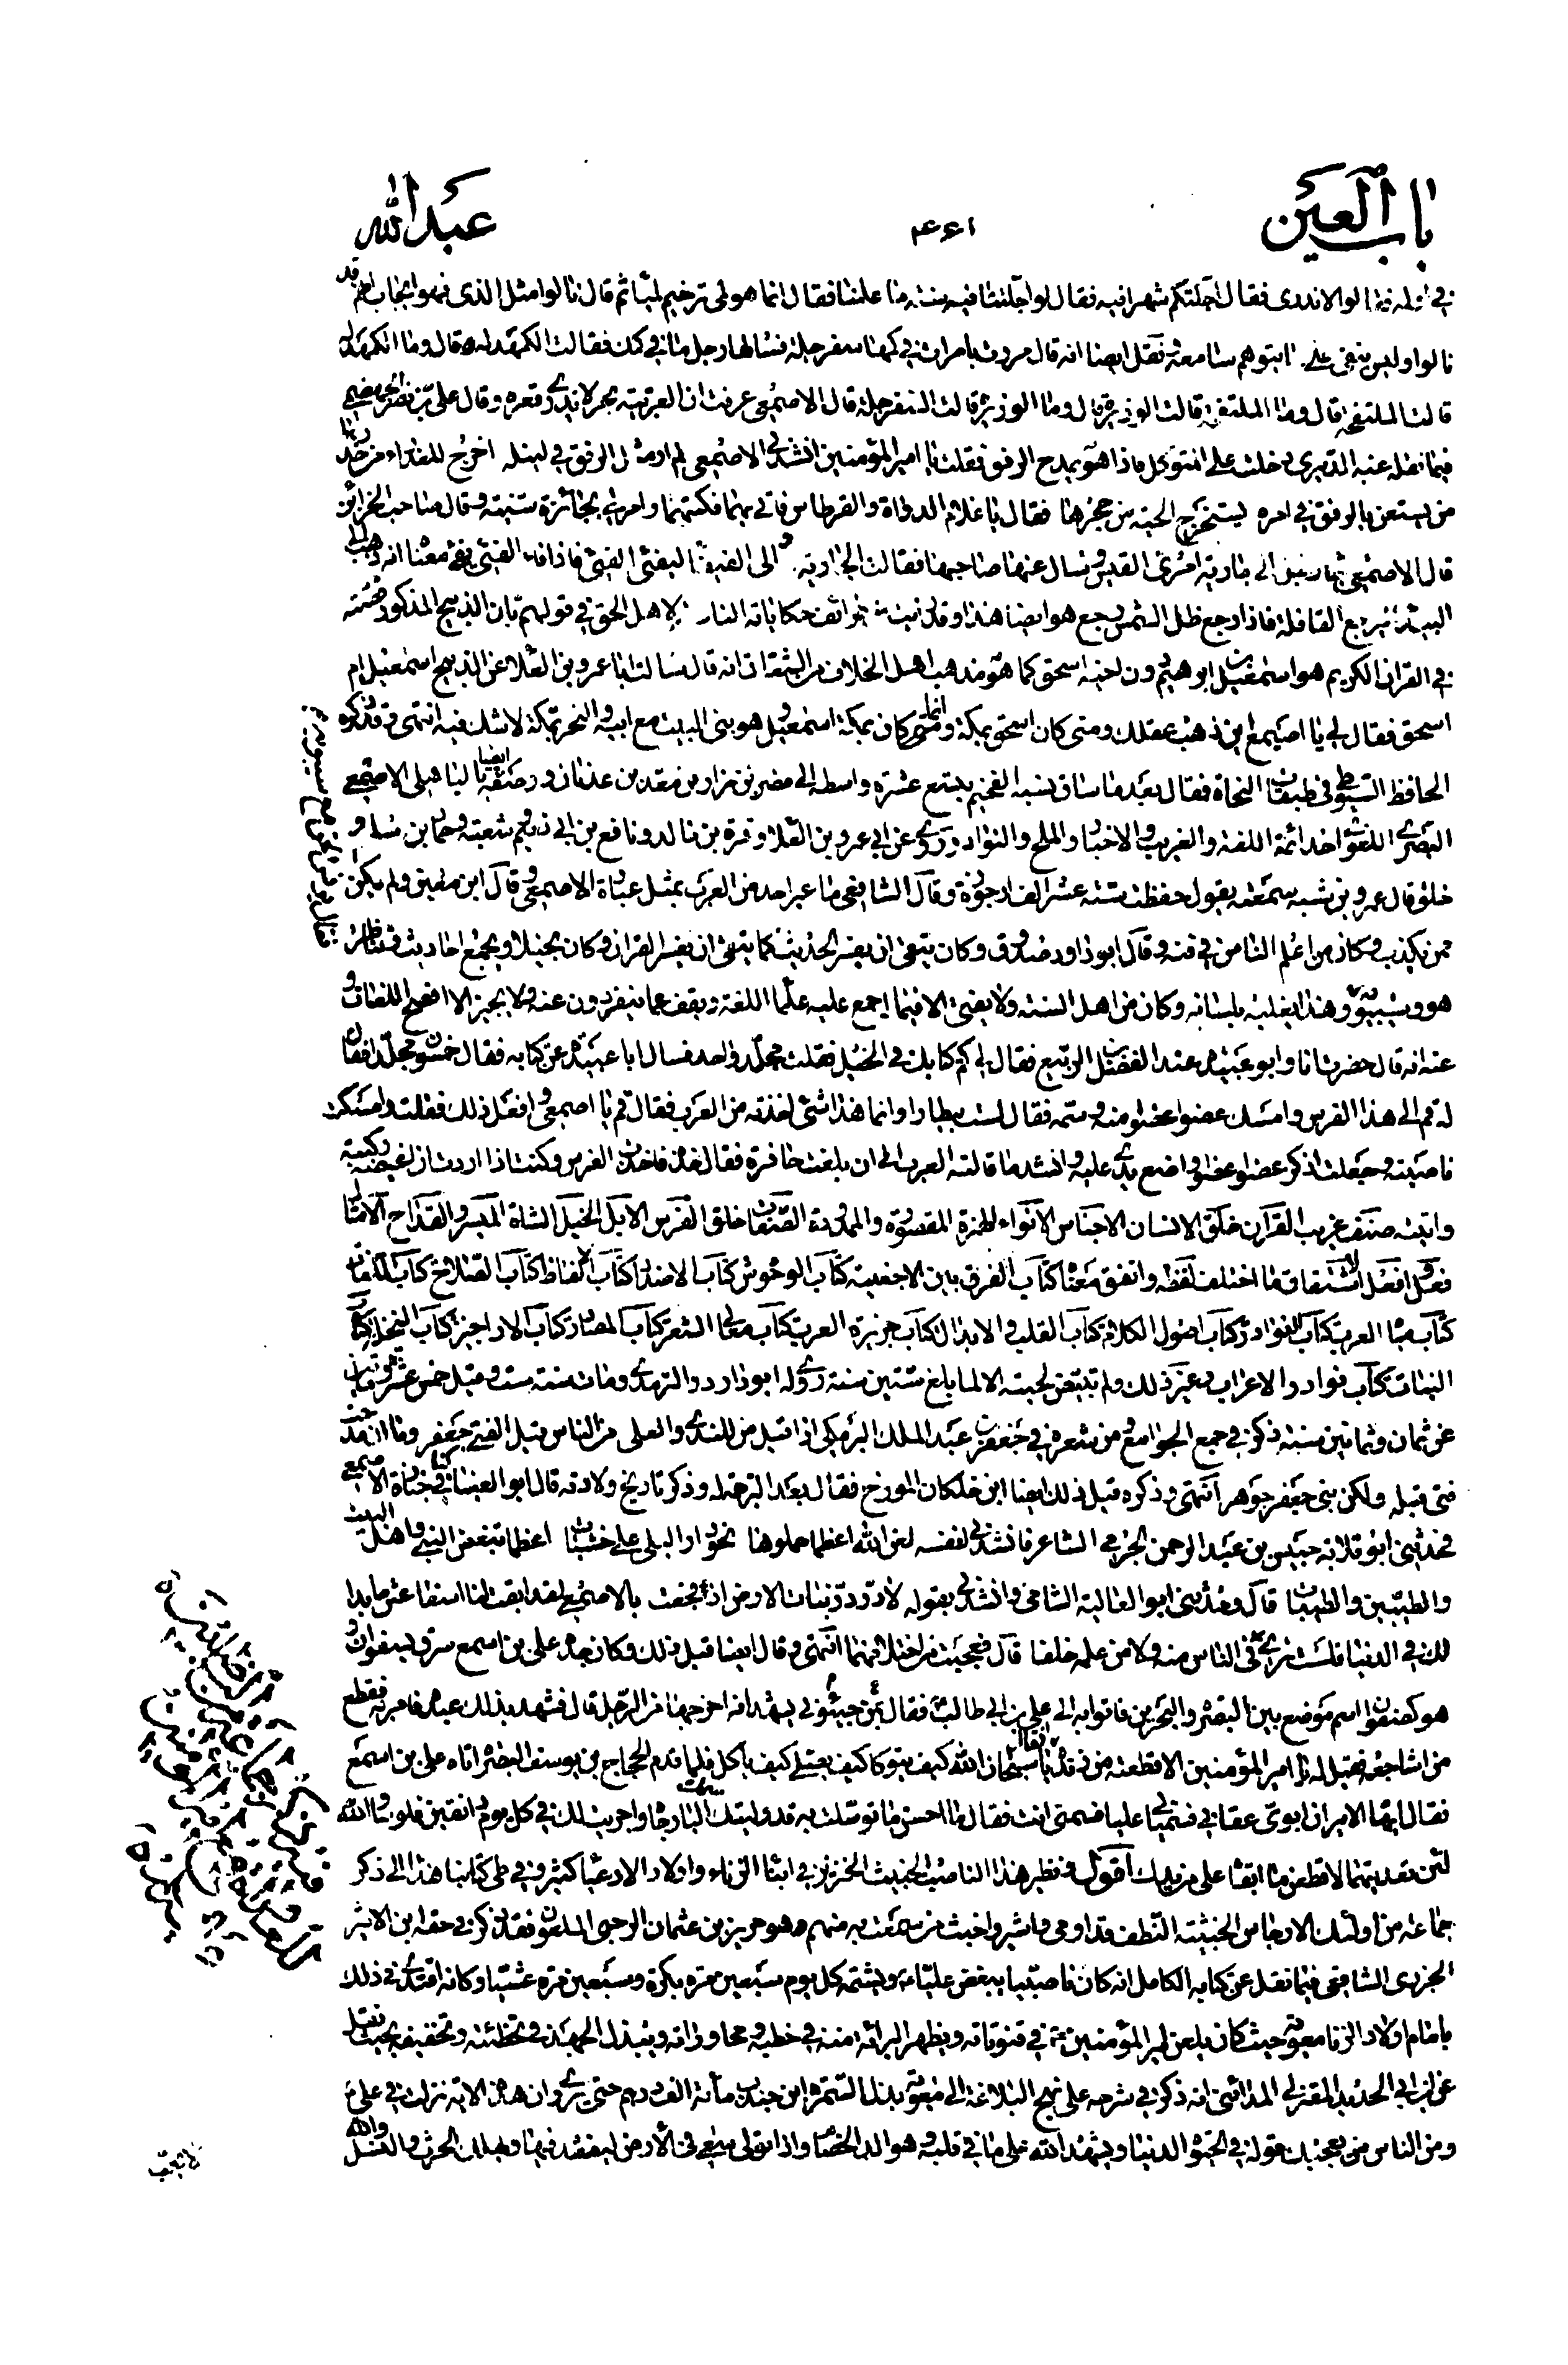 باب العين
۴۶۱
عبدالله
قالوا لا ندرى فقال اجلتكم شهرا فيه فقال لو اجلتنا فيه سنة ما علمنا فقال انما هو لى ترخيم لميا ثم قال قالوا مثل الذى
قالوا اوليس ونقل ايضا انه قال مررت بامراة فى كمها سفرجلة فسألها رجل ما فى كمك فقالت الكهدلة قال وما الكهدلة
قالت قال وما قالت قال وما قالت السفرجلة قال الاصمعى عرفت ان العربية بحر لا يدرك قعره وقال على بن نصر الجهضمى
فيما نقله عنه الدميرى دخلت على المتوكل فاذا هو يمدح الرفق فقلت يا امير المؤمنين انشدنى الاصمعى لم ار مثل الرفق فى لينه اخرج للعذراء من خدرها
من يستعن بالرفق فى امره يستخرج الحية من جحرها فقال يا غلام الدواة والقرطاس فاتى بهما فكتبهما وامر لى بجائزة سنية وقال صاحب الخزائن
قال الاصمعى الى جارية امرئ القيس وسال عنها صاحبها فقالت الجارية الى الفيفاء ليفئ الفئ فاذا فاء الفئ يفئ معناه انه ذهب الى
القافلة فاذا رجع ظل الشمس رجع هو ايضا هذا وقد لاهل الحق فى قولهم بان الذبيح المذكور قصته
فى القران الكريم هو اسمعيل بن ابرهيم دون اخيه اسحق كما هو مذهب اهل الخلاف من الثقات انه قال سالت ابا عمرو بن العلاء عن الذبيح اسمعيل ام
اسحق فقال لى يا اصيمع اين ذهب عقلك ومتى كان اسحق بمكة وانما كان بمكة اسمعيل وهو بنى البيت مع ابيه والنحر بمكة لا شك فيه انتهى وقد ذكره
الحافظ السيوطى فى طبقات النحاة فقال بعد ما ساق نسبه الفخيم بسبع عشرة واسطه الى مضر بن نزار بن معد بن عدنان ووصفه ايضا بالباهلى الاصمعى
البصرى اللغوى احد ائمة اللغة والغريب والاخبار والملح والنوادر روى عن ابى عمرو بن العلاء وقرة بن خالد ونافع بن ابى نعيم وشعبة وحماد بن سلمة و
خلق قال عمرو بن شبه سمعته يقول حفظت ستة عشر الف ارجوزة وقال الشافعى ما عبر احد من العرب بمثل عبارة الاصمعى وقال ابن معين ولم يكن
ممن يكذب وكان من اعلم الناس فى فنه وقال ابو داود صدوق وكان يتقى ان يفسر الحديث كما يتقى ان يفسر القران وكان بخيلا ويجمع احاديث وتناظر
هو وسيبويه وهذا يغلبه بلسانه وكان من اهل السنة ولا يفتى الا فيما اجمع عليه علماء اللغة ويقف عما ينفردون عنه ولا يجيز الا افصح اللغات و
عنه انه قال حضرت انا وابو عبيدة عند الفضل بن الربيع فقال لى كم كتابك فى الخيل فقلت مجلد واحد فسال ابا عبيدة عن كتابه فقال خمسون مجلدا فقال
له قم الى هذا الفرس وامسك عضوا عضوا منه وسمه فقال لست بيطارا وانما هذا شئ اخذته من العرب فقال قم يا اصمعى وافعل ذلك فقلت وامسكت
ناصيته وجعلت اذكر عضوا عضوا واضع يدى عليه وانشد ما قالته العرب الى ان بلغت حافره فقال خذه فاخذت الفرس وكنت اذا اردت ان اغيضه ركبته
واتيته صنف غريب القران خلق الانسان الاجناس الانواء الهمزة المقصورة والممدودة الصفات خلق الفرس الابل الخيل الشاة الميسر والقداح الامثال
فعل وافعل الاشتقاق ما اختلف لفظه واتفق معناه كتاب الفرق بين الاخبية كتاب الوحوش كتاب الاضداد كتاب الالفاظ كتاب السلاح كتاب اللغات
كتاب مياه العرب كتاب النوادر كتاب اصول الكلام كتاب القلب والابدال كتاب جزيرة العرب كتاب معانى الشعر كتاب المصادر كتاب الاراجيز كتاب النخل كتاب
النبات كتاب نوادر الاعراب وغير ذلك ولم تبيض لحيته الا لما بلغ ستين سنة روى له ابو داود والترمذى ومات سنة ست وقيل خمس عشرة ومأتين
عن ثمان وثمانين سنة ذكر فى جمع الجوامع ومن شعره فى جعفر بن عبد الملك البرمكى اذا قيل من للندى والعلى من الناس قيل الفتى جعفر وما ان مدحت
فتى قبله ولكن بنى جعفر جوهر انتهى وذكره قبل ذلك ايضا ابن خلكان المورخ فقال بعد الترجمة وذكر تاريخ ولادته قال ابو العيناء كنا فى جنازة الاصمعى
فحدثنى ابو قلابة حبيش بن عبد الرحمن الجرمى الشاعر فانشدنى لنفسه لعن الله اعظما حملوها نحو دار البلى على خشبات اعظما تبغض النبى واهل البيت
والطيبين والطيبات قال وحدثنى ابو العالية الشامى وانشدنى بقوله لا در در نبات الارض اذ فجعت بالاصمعى لقد ابقت لنا اسفا عش ما بدا
لك فى الدنيا فلست ترى فى الناس منه ولا من علمه خلفا قال فعجبت من اختلافهما انتهى وقال ايضا قبل ذلك وكان جده على بن اصمع سرق بسفوان و
هو كصفوان اسم موضع بين البصرة والبحرين فاتوا به الى على بن ابى طالب فقال جيئونى بمن يشهد انه اخرجها من الرحل قال فشهد بذلك عنده فامر به فقطع
من اشاجعه فقيل له يا امير المؤمنين الا قطعته من زنده فقال يا سبحان الله كيف يتوكا كيف يصلى كيف ياكل فلما قدم الحجاج بن يوسف البصرة اتاه على بن اصمع
فقال ايها الامير ان ابوى عقانى فسميانى عليا فسمنى انت فقال ما احسن ما توسلت به قد وليتك سمك البارجاه واجريت لك فى كل يوم دانقين فلوسا ووالله
لئن تعديتهما لاقطعن ما ابقاه على من يدك اقول ونظير هذا الناصب الخبيث الخنزير فى ابناء الزناء واولاد الادعياء كثير وفى طى كتابنا هذا الى ذكر
جماعة من اولئك الارجاس الخبيثة النطف قد اومى واشير واخبث من سمعت به منهم هو حريز بن عثمان الرحبى الملعون فقد ذكر فى حقه ابن الاثير
الجزرى الشافعى فيما نقل عن كتابه الكامل انه كان ناصبيا يبغض عليا ويشتمه كل يوم سبعين مرة بكرة وسبعين مرة عشيا وكانه اقتدى فى ذلك
بامام اولاد الزنا معوية حيث كان يلعن امير المؤمنين فى قنوتاته ويظهر البرائة منه فى خطبه ومحاوراته ويبذل الجهد فى تخطئته وتخفيفه بحيث نقل
عن ابن ابى الحديد المعتزلى المدائنى انه ذكر فى شرحه على نهج البلاغة ان معوية بذل لسمرة ابن جندب مأة الف درهم حتى يروى ان هذه الاية نزلت فى على
ومن الناس من يعجبك قوله فى الحيوة الدنيا ويشهد الله على ما فى قلبه وهو الد الخصام واذا تولى سعى فى الارض ليفسد فيها ويهلك الحرث والنسل والله
لا يحب